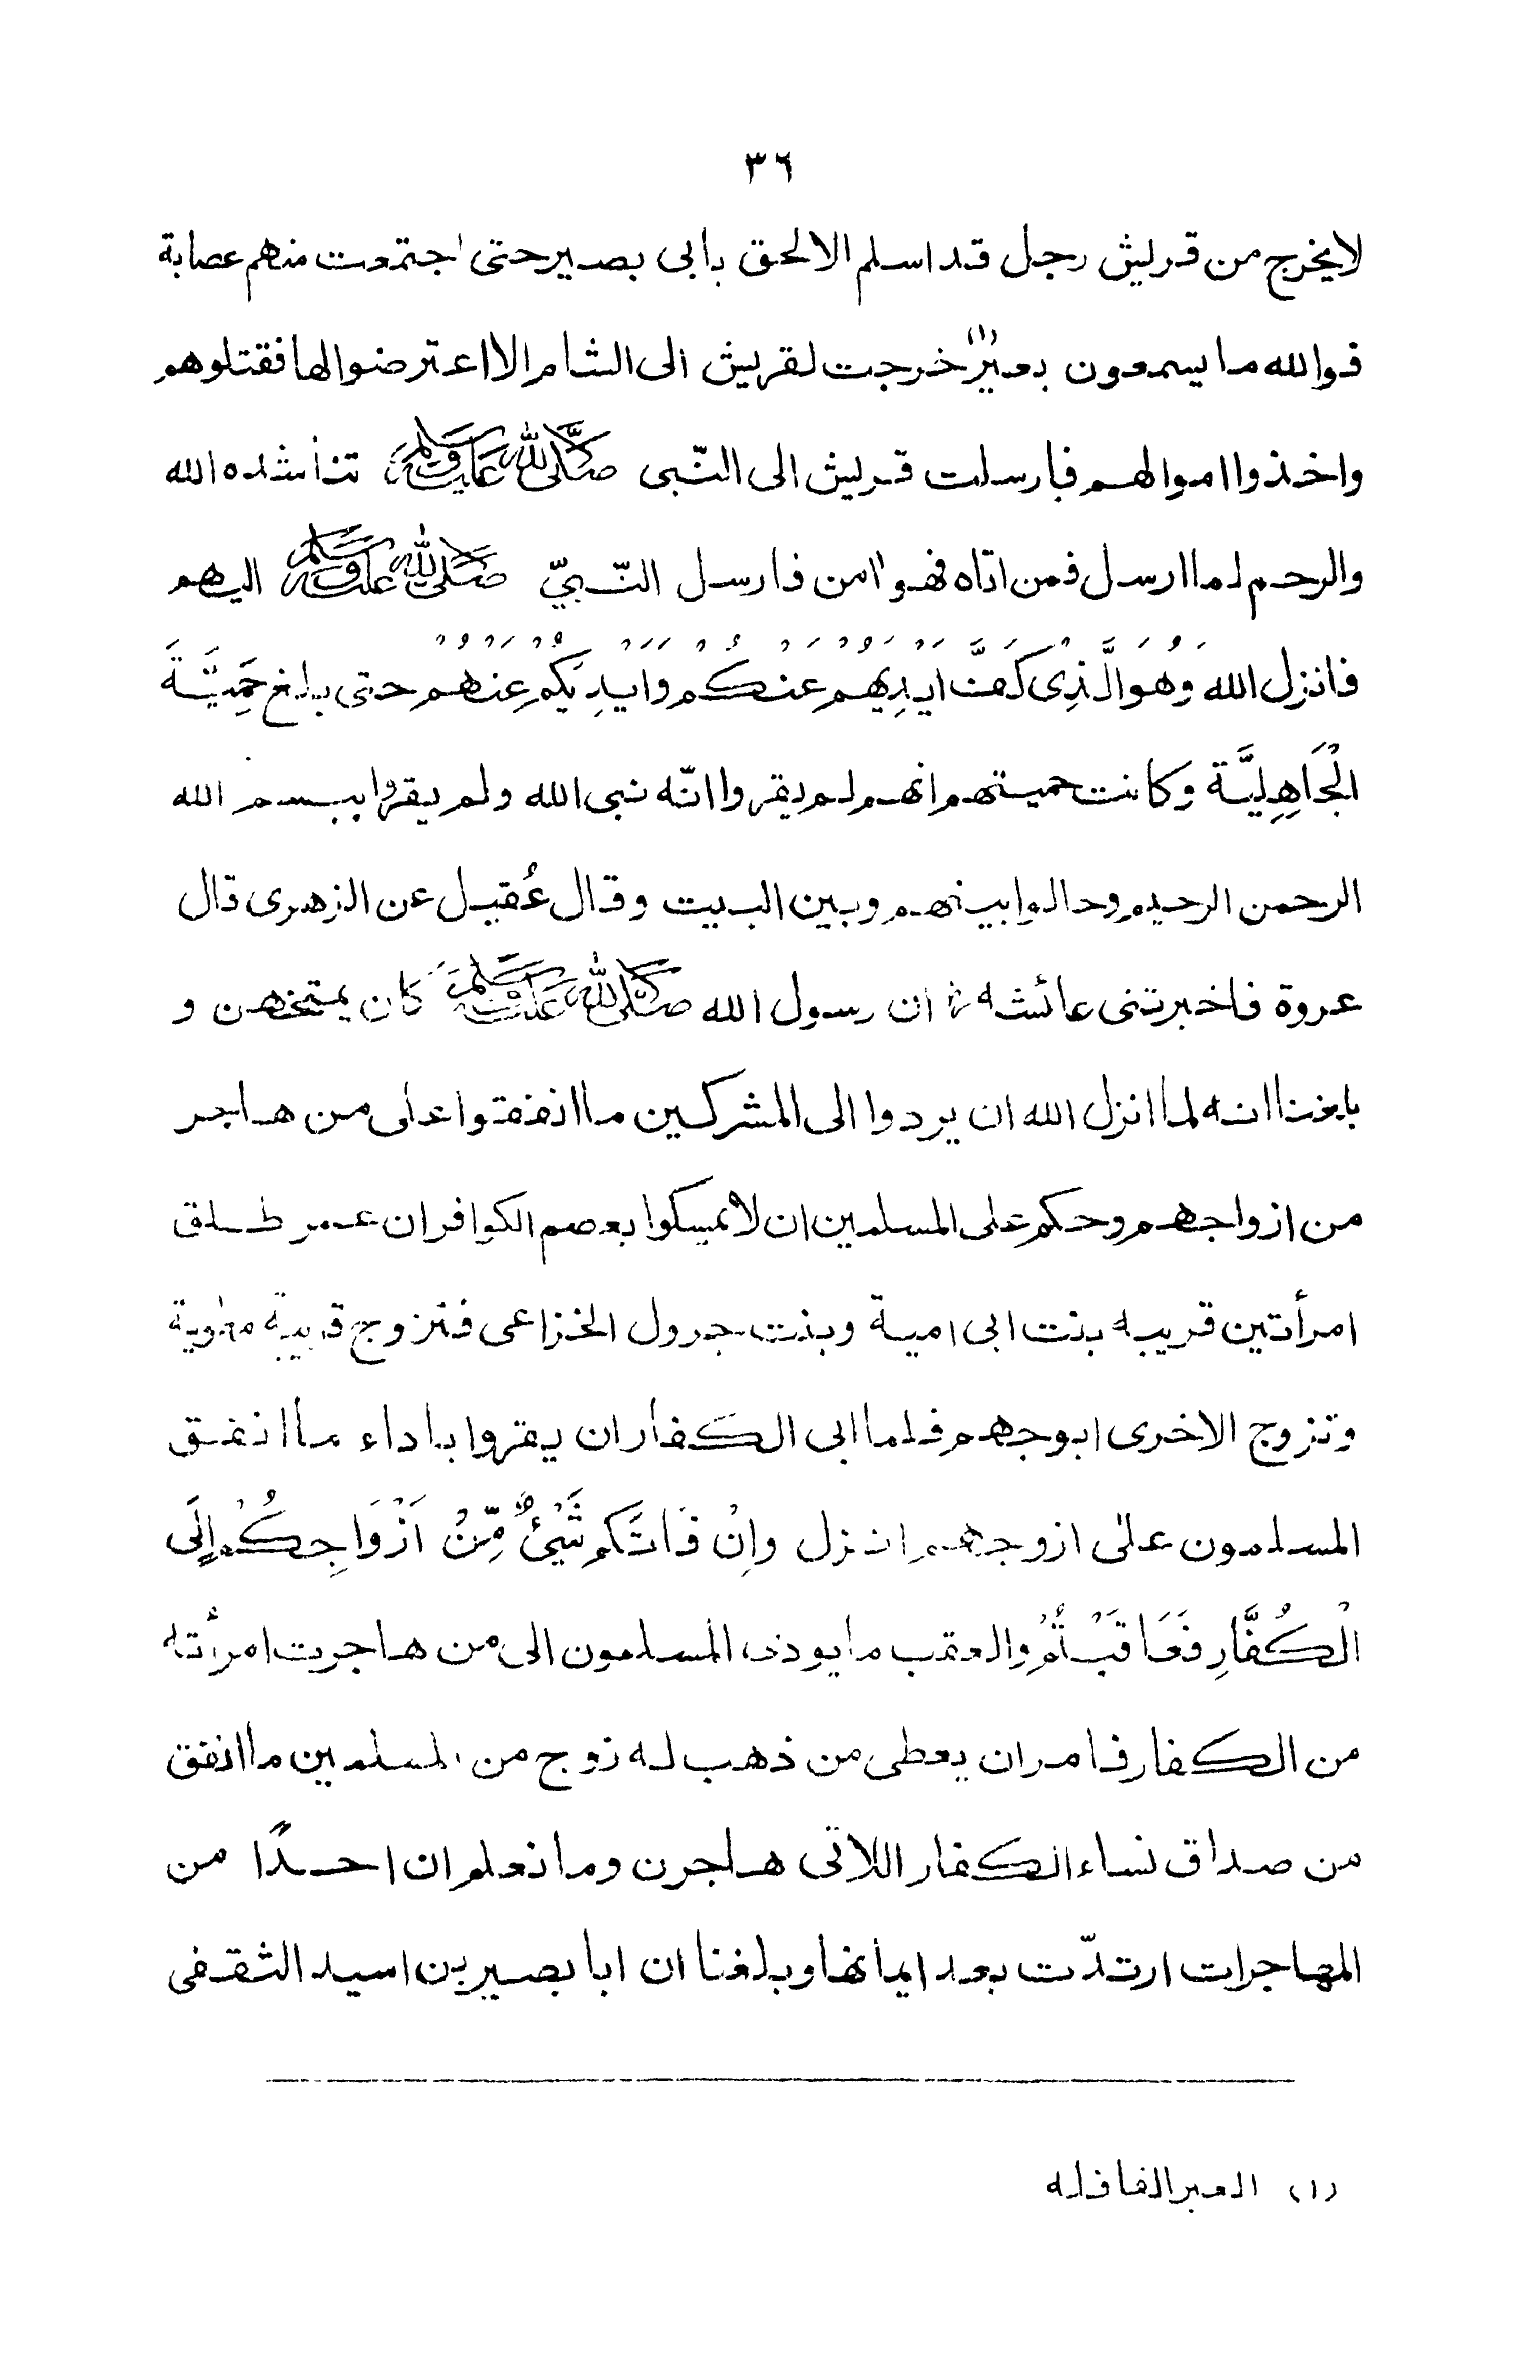 ٣٦
لا يخرج من قريش رجل قد اسلم الا لحق بابى بصير حتى اجتمعت منهم عصابة
فوالله ما يسمعون بعيرٍ(١) خرجت لقريش الى الشام الا اعترضوا لها فقتلوهم
واخذوا اموالهم فارسلت قريش الى النّبى صَلَّى اللّٰهُ عَلَيْهِ وَسَلَّمَ تناشده الله
والرحم لما ارسل فمن اتاه فهو اٰمن فارسل النّبيّ صَلَّى اللّٰهُ عَلَيْهِ وَسَلَّمَ اليهم
فانزل الله وَهُوَ الَّذِىْ كَفَّ اَيْدِيَهُمْ عَنْكُمْ وَاَيْدِيَكُمْ عَنْهُمْ حتى بلغ حَمِيَّةَ
الْجَاهِلِيَّة وكانت حميتهم انهم لم يقروا انّه نبى الله ولم يقروا ببسم الله
الرحمن الرحيم وحالوا بينهم وبين البيت وقال عُقيل عن الزهرى قال
عروة فاخبرتنى عائشه رض ان رسول الله صَلَّى اللّٰهُ عَلَيْهِ وَسَلَّمَ كان يمتحنهن و
بلغنا انه لما انزل الله ان يردوا الى المشركين ما انفقوا على من هاجر
من ازواجهم وحكم على المسلمين ان لا يمسكوا بعصم الكوافر ان عمر طلق
امرأتين قريبه بنت ابى امية وبنت جرول الخزاعى فتزوج قريبة معٰوية
وتزوج الاخرى ابوجهم فلما ابى الكفار ان يقروا باداء ما انفق
المسلمون علىٰ ازوجهم انزل وإنْ فَاتَكم شَيْئٌ مِّنْ اَزْوَاجِكُمْ اِلَى
الْكُفَّارِ فَعَاقَبْتُمْ والعقب ما يودى المسلمون الى من هاجرت امرأته
من الكفار فامر ان يعطى من ذهب له زوج من المسلمين ما انفق
من صداق نساء الكفار اللاتى هاجرن وما نعلم ان احدًا من
المهاجرات ارتدّت بعد ايمانها وبلغنا ان ابا بصير بن اسيد الثقفى
(١) العير القافله